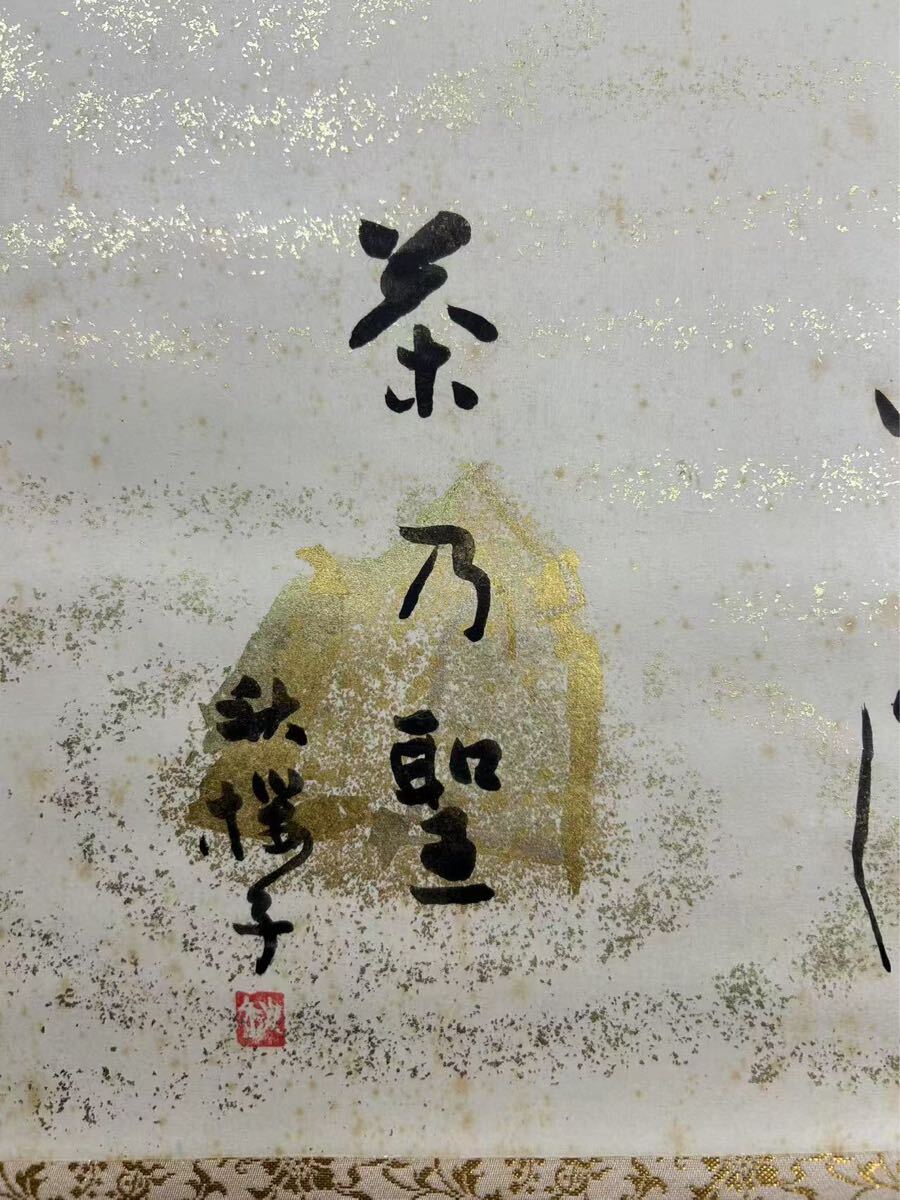 茶乃聖
秋櫻子